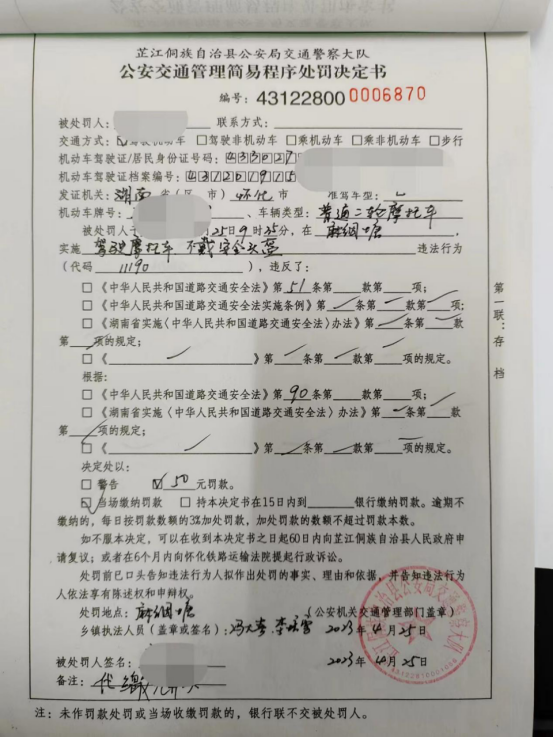 芷江侗族自治县公安局交通警察大队
公安交通管理简易程序处罚决定书
编号：43122800 0006870
被处罚人： 联系方式：
交通方式：☑驾驶机动车 □驾驶非机动车 □乘机动车 □乘非机动车 □步行
机动车驾驶证/居民身份证号码：433027
机动车驾驶证档案编号：43120915
发证机关：湖南省（区、市）怀化市 准驾车型：
机动车牌号： 、车辆类型：普通二轮摩托车
被处罚人于 25日9时25分，在麻缨塘，
实施 驾驶摩托车不戴安全头盔 违法行为
（代码 11190 ），违反了：
□《中华人民共和国道路交通安全法》第51条第 款第 项；
□《中华人民共和国道路交通安全法实施条例》第 条第 款第 项；
□《湖南省实施〈中华人民共和国道路交通安全法〉办法》第 条第 款
第 项的规定；
□《 》第 条第 款第 项的规定。
根据：
□《中华人民共和国道路交通安全法》第90条第 款第 项；
□《湖南省实施〈中华人民共和国道路交通安全法〉办法》第 条第 款
第 项的规定；
□《 》第 条第 款第 项的规定。
决定处以：
□ 警告 ☑ 50 元罚款。
☑当场缴纳罚款 □ 持本决定书在15日内到 银行缴纳罚款。逾期不
缴纳的，每日按罚款数额的3%加处罚款，加处罚款的数额不超过罚款本数。
如不服本决定，可以在收到本决定书之日起60日内向芷江侗族自治县人民政府申
请复议；或者在6个月内向怀化铁路运输法院提起行政诉讼。
处罚前已口头告知违法行为人拟作出处罚的事实、理由和依据，并告知违法行为
人依法享有陈述权和申辩权。
处罚地点：麻缨塘 （公安机关交通管理部门盖章）
乡镇执法人员（盖章或签名）： 2023年4月25日
被处罚人签名： 2023年4月25日
备注：代缴
注：未作罚款处罚或当场收缴罚款的，银行联不交被处罚人。
第一联：存档